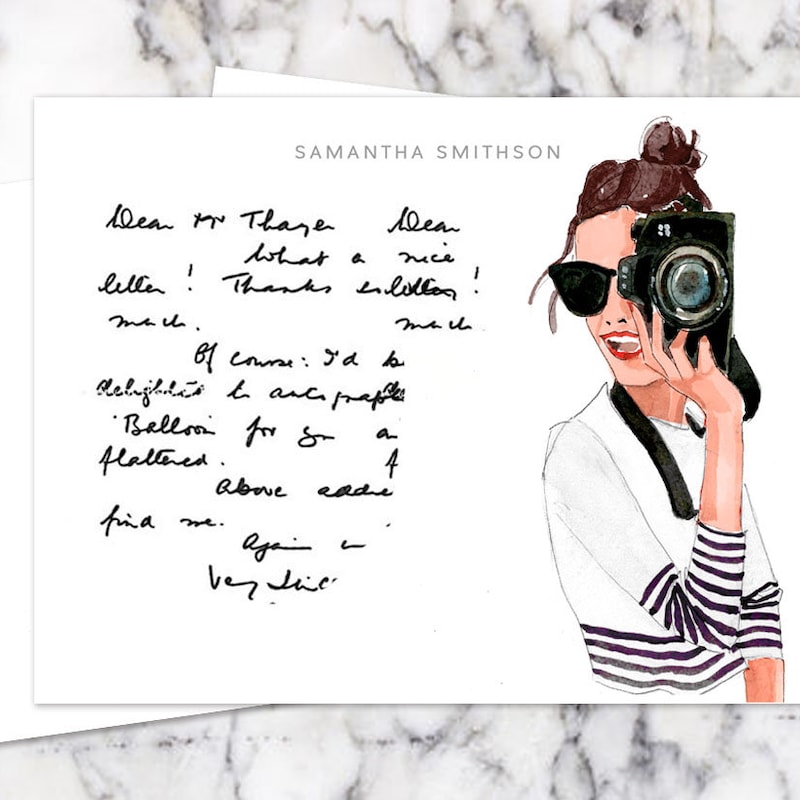 SAMANTHA SMITHSON
Dear Mr Thayer Dear
What a nice
letter! Thanks !
much. much
Of course: I'd b
delighted to autograph
'Balloon for you an
flattered. f
Above addre
find me.
Again
Very Sinc